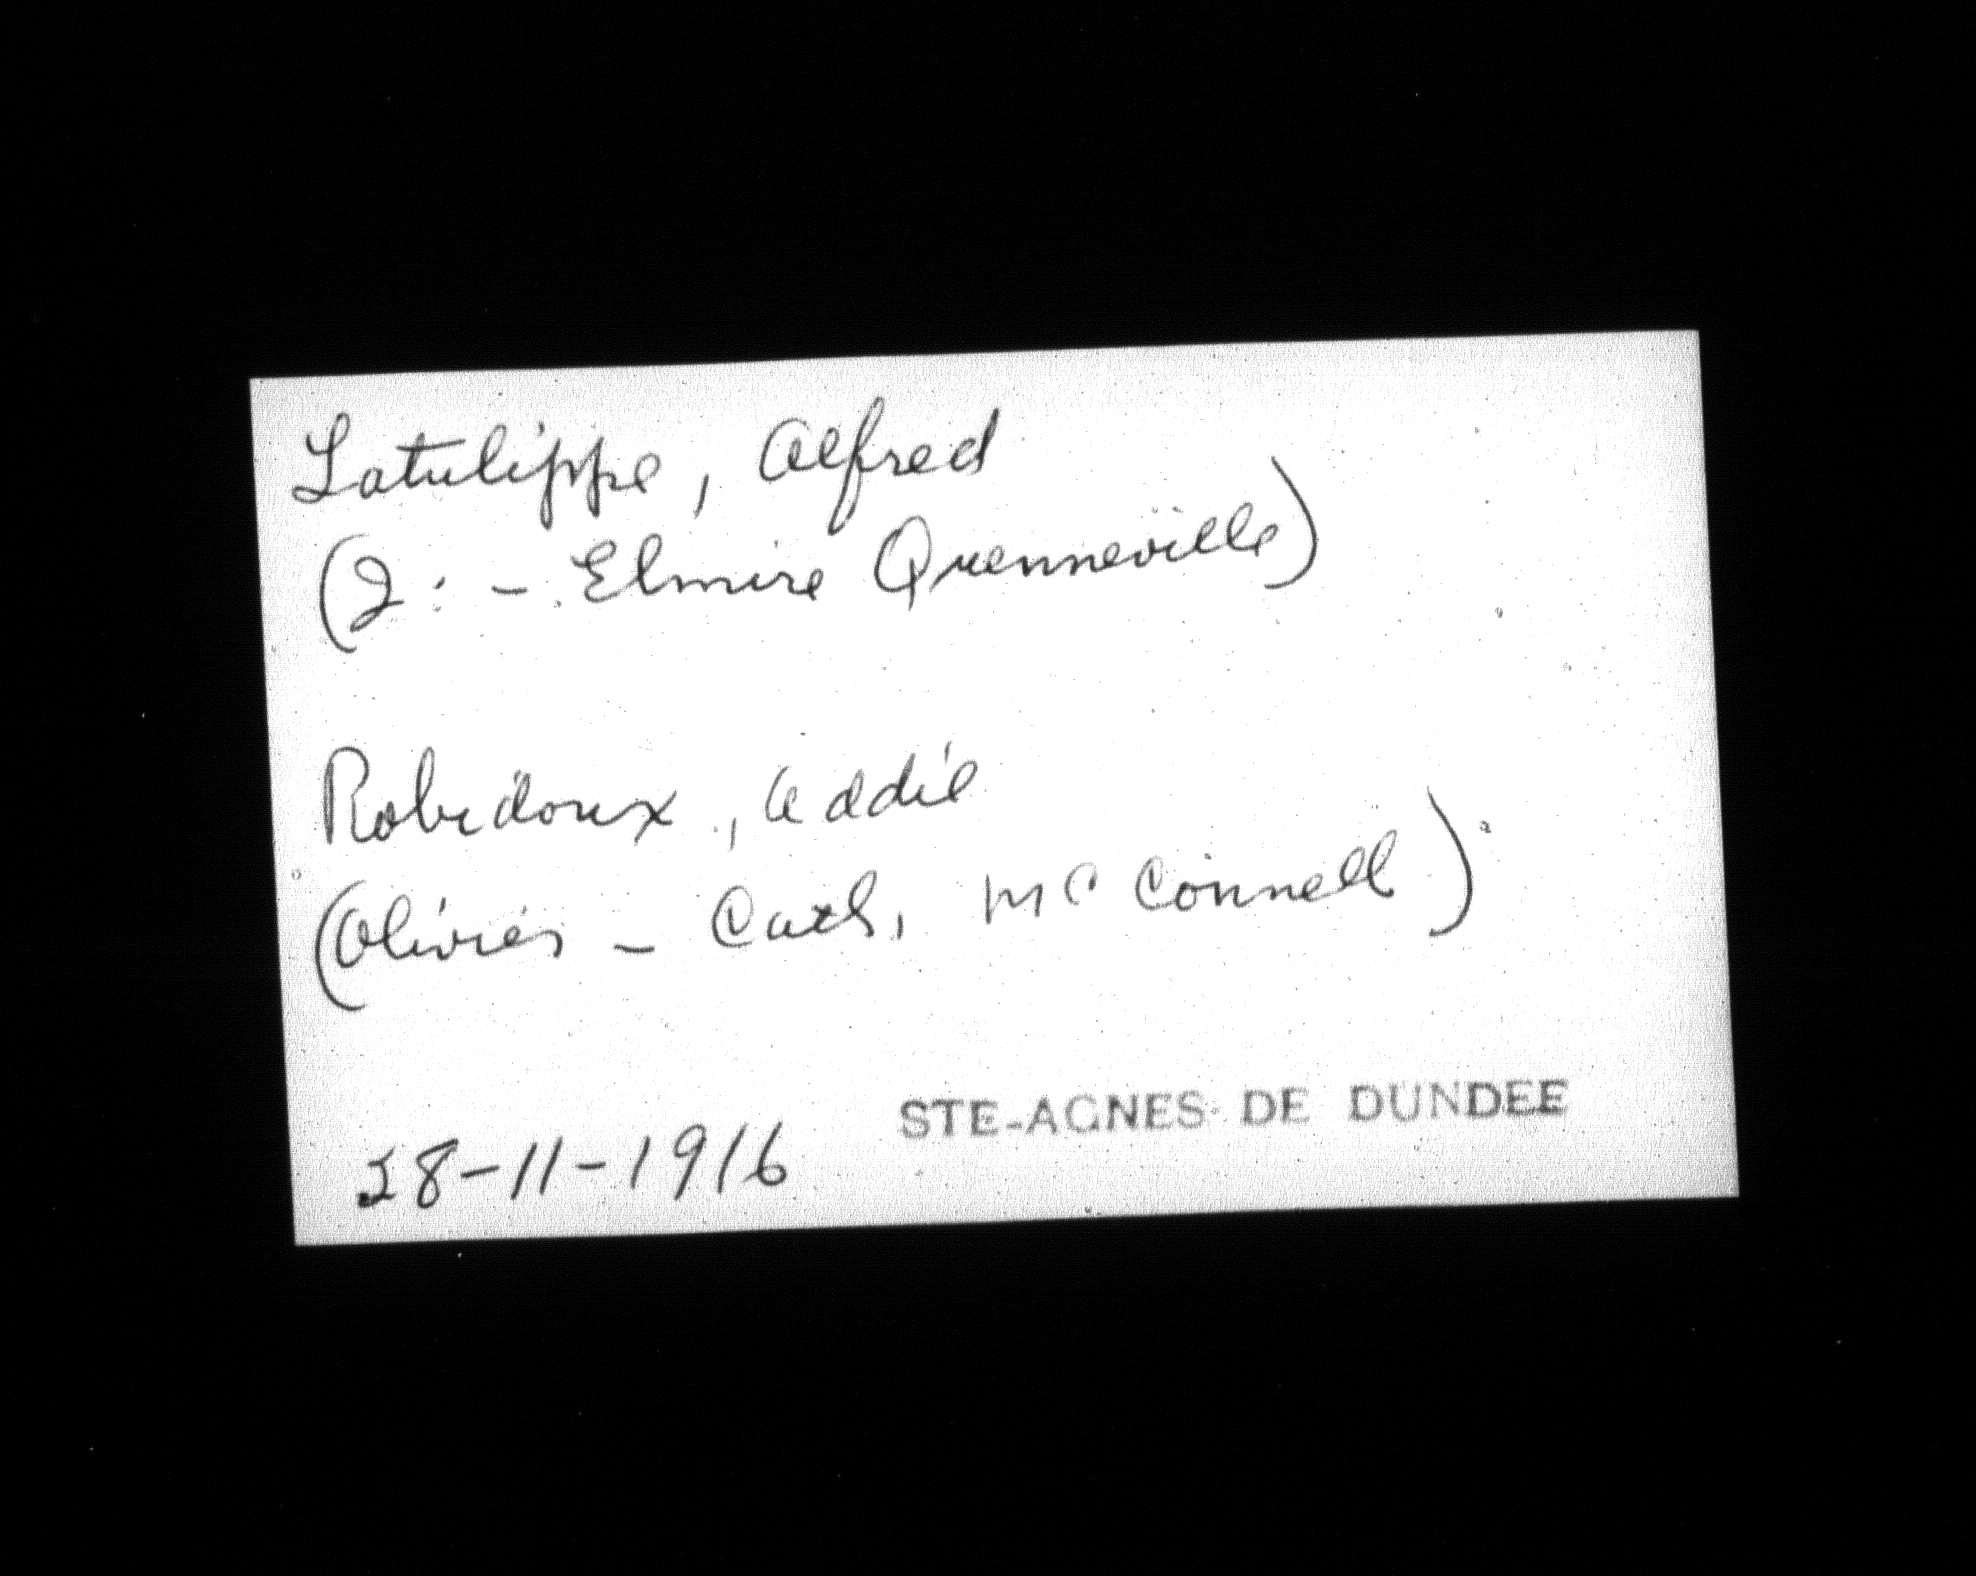 Latulippe, Alfred
(J: - Elmire Quenneville)
Robidoux, Addie
(Olivier - Cath, McConnell)
28-11-1916
STE-AGNES DE DUNDEE